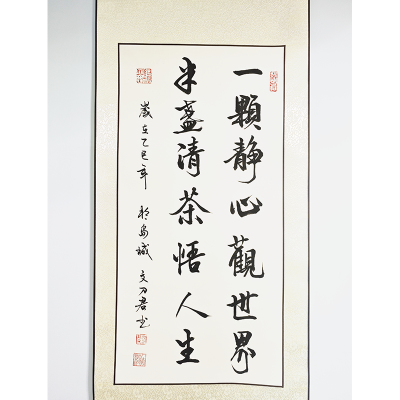 一顆静心觀世界
半盞清茶悟人生
歲在乙巳年 於島城 文刀君书